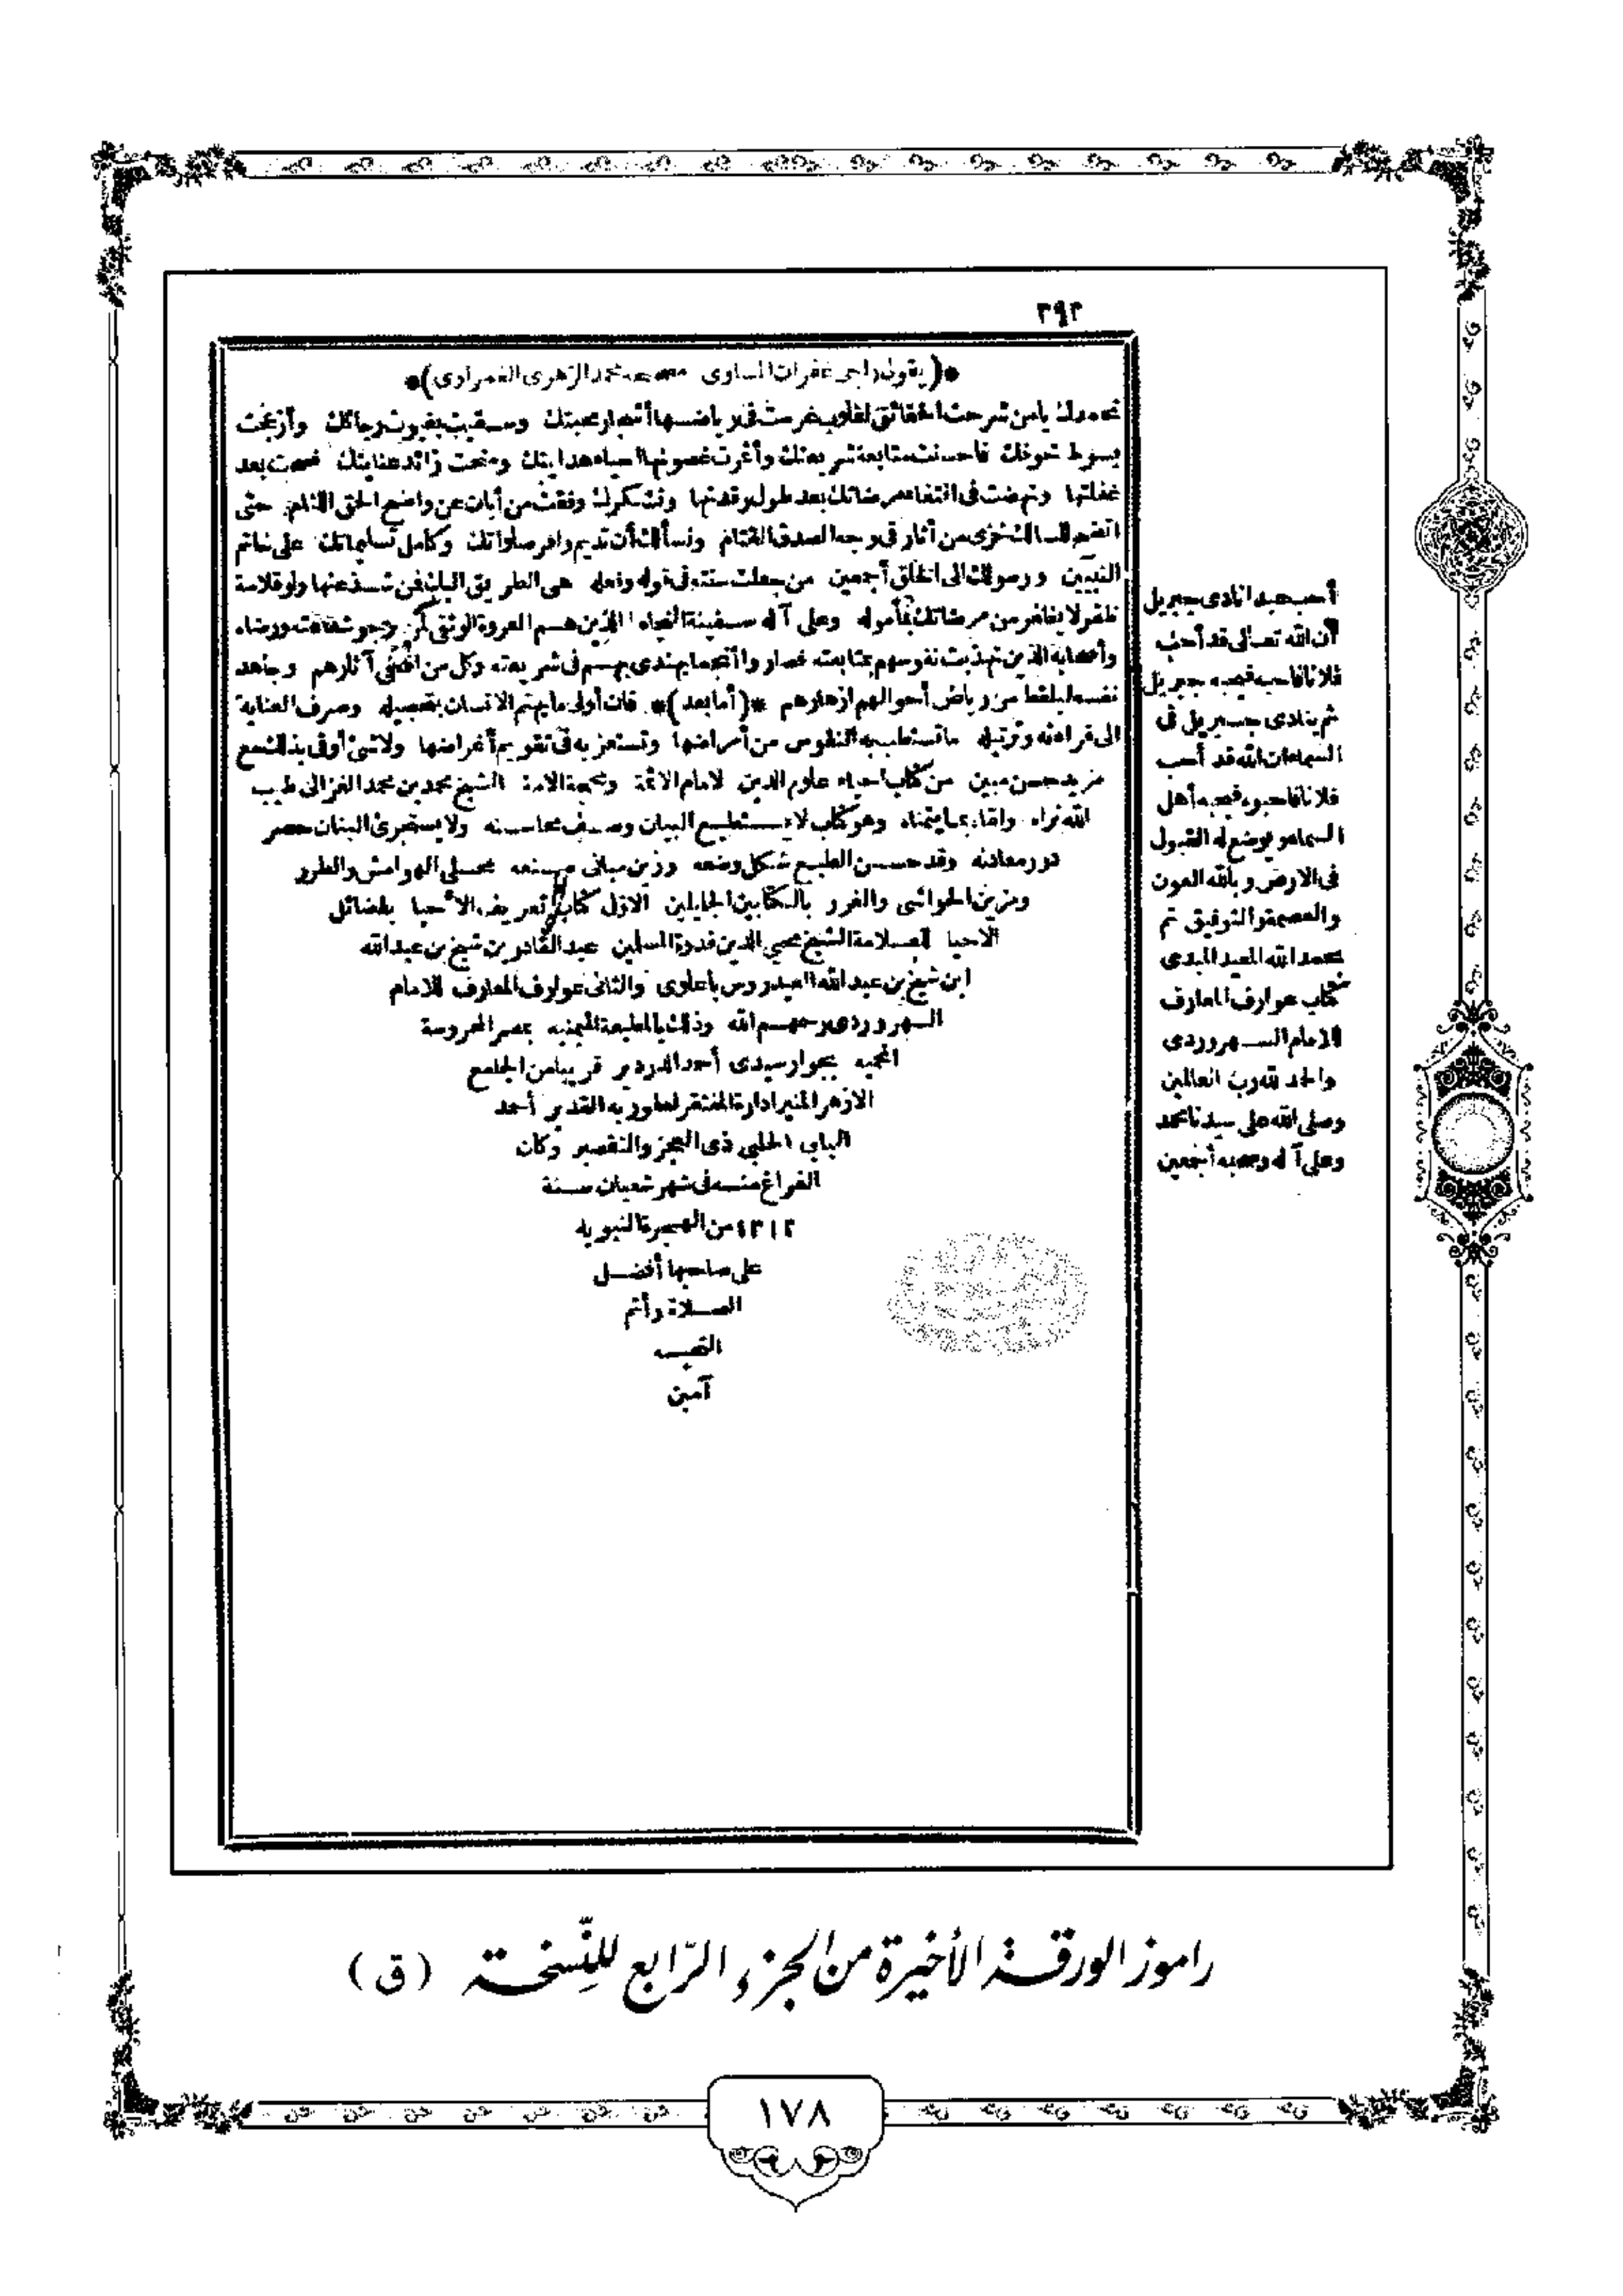 ٣٩٣
*(يقول راجي غفران المساوي مصححه محمد الزهري الغمراوي)*
نحمدك يامن شرحت الحقائق لقلوب غرست في رياضها أشجار محبتك وسقيت بغيوث رجائك وأزعجت
بسوط خوفك فأحسنت متابعة شريعتك وأثمرت غصونها لمياه هدايتك ومنحت زائد عنايتك فصحت بعد
غفلتها ونهضت في اقتفاء مرضاتك بعد طول رقدتها ونشكرك وفقت من أبان عن واضح الحق اللثام حتى
اتضح للسالك خزي من أثار في وجه الصدق القتام ونسألك أن تديم وافر صلواتك وكامل تسليماتك على خاتم
النبيين ورسولك الى الخلق أجمعين من جعلت سنته في قوله وفعله هي الطريق اليك فمن شذ عنها ولو قلامة
ظفر لا يظفر من مرضاتك بمأموله وعلى آله سفينة النجاه الذين هم العروة الوثقى لكل من يرجو شفاعته ورضاه
وأصحابه الذين تهذبت نفوسهم بمتابعته فصاروا أنجما يهتدى بهم في شريعته وكل من اقتفى آثارهم وجاهد
نفسه ليلقط من رياض أحوالهم أزهارهم *(أما بعد)* فان أولى ما يهتم الانسان بتحصيله وصرف العناية
الى قراءته وترتيله ما تستطب به النفوس من أمراضها وتستعز به في تقويم أغراضها ولا شئ أوفى بذلك مع
مزيد حسن مبين من كتاب احياء علوم الدين لامام الائمة وحجة الامة الشيخ محمد بن محمد الغزالي طيب
الله ثراه ولقاه بما يتمناه وهو كتاب لا يستطيع البيان وصف محاسنه ولا يستجرئ البنان حصر
درر معادنه وقد حسن الطبع شكل وضعه وزين مباني صنعه محلى الهوامش والطرر
ومزين الحواشي والغرر بالكتابين الجليلين الاول كتاب تعريف الأحيا بفضائل
الاحيا للعلامة الشيخ محيي الدين قدوة المسلمين عبد القادر بن شيخ بن عبد الله
ابن شيخ بن عبد الله العيدروس باعلوي والثاني عوارف المعارف للامام
السهروردي رحمهم الله وذلك بالمطبعة الميمنيه بمصر المحروسة
المحميه بجوار سيدي أحمد الدردير قريبا من الجامع
الازهر المنير ادارة المفتقر لعفو ربه القدير أحمد
البابي الحلبي ذي العجز والتقصير وكان
الفراغ منه في شهر شعبان سنة
١٣١٢ من الهجرة النبويه
على صاحبها أفضل
الصلاة وأتم
التحيه
آمين
أحب عبدا نادى جبريل
ان الله تعالى قد أحب
فلانا فاحبه فيحبه جبريل
ثم ينادى جبريل في
السماء ان الله قد أحب
فلانا فاحبوه فيحبه أهل
السماء ويوضع له القبول
في الارض وبالله العون
والعصمة والتوفيق تم
بحمد الله المعيد المبدى
كتاب عوارف المعارف
للامام السهروردى
والحمد لله رب العالمين
وصلى الله على سيدنا محمد
وعلى آله وصحبه أجمعين
راموز الورقة الأخيرة من الجزء الرّابع للنّسخة (ق)
١٧٨